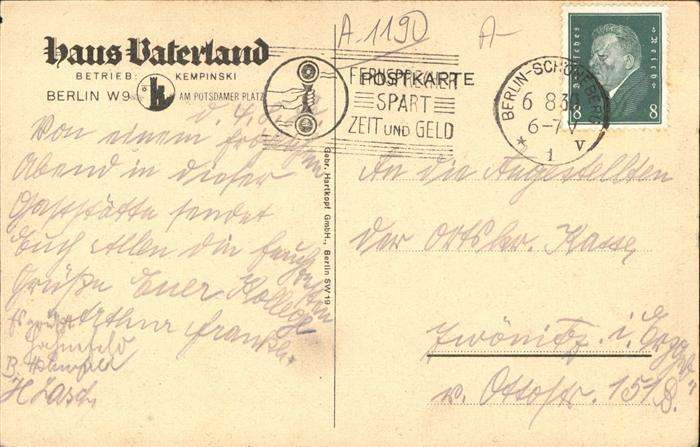 A-1190
A-
Haus Vaterland
BETRIEB: KEMPINSKI
BERLIN W9 AM POTSDAMER PLATZ
POSTKARTE
FERNSPRECHER
SPART
ZEIT UND GELD
BERLIN-SCHÖNEBERG
6 8 3
6-7V
* 1 v
Deutsches Reich
8 8
Von einem fröhlichen
Abend in dieser
Gaststätte sendet
Euch Allen die feuchtesten
Grüße Euer Kollege
Arthur Franke.
Es grüßt
B.
H
Gebr. Hartkopf GmbH., Berlin SW 19
An die Angestellten
der Ortskr. Kasse
Zwönitz i. Erzgb.
v. Ottostr. 151 B.